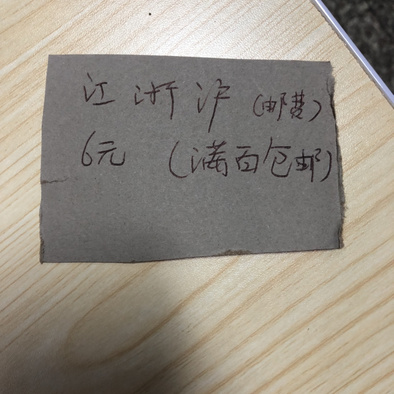 江浙沪(邮费)
6元(满百包邮)